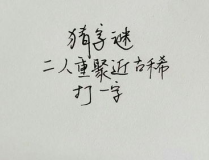 猜字谜
二人重聚近古稀
打一字